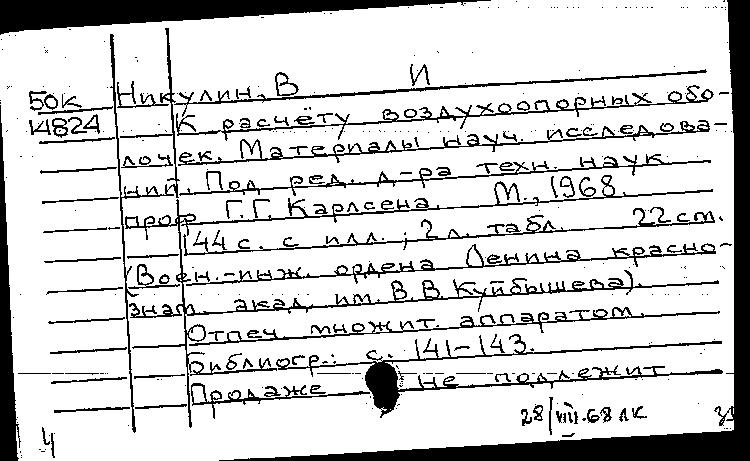 50к Никулин, В И
14824 К расчёту воздухоопорных обо-
лочек. Материалы науч. исследова-
ний. Под ред. д-ра техн. наук
проф Г.Г. Карлсена. М., 1968.
144 с. с илл.; 2 л. табл. 22 см.
(Воен.-инж. ордена Ленина красно-
знам. акад. им. В.В. Куйбышева).
Отпеч. множит. аппаратом.
Библиогр.: с. 141-143.
Продаже не подлежит
28/VIII-68 ЛК
4